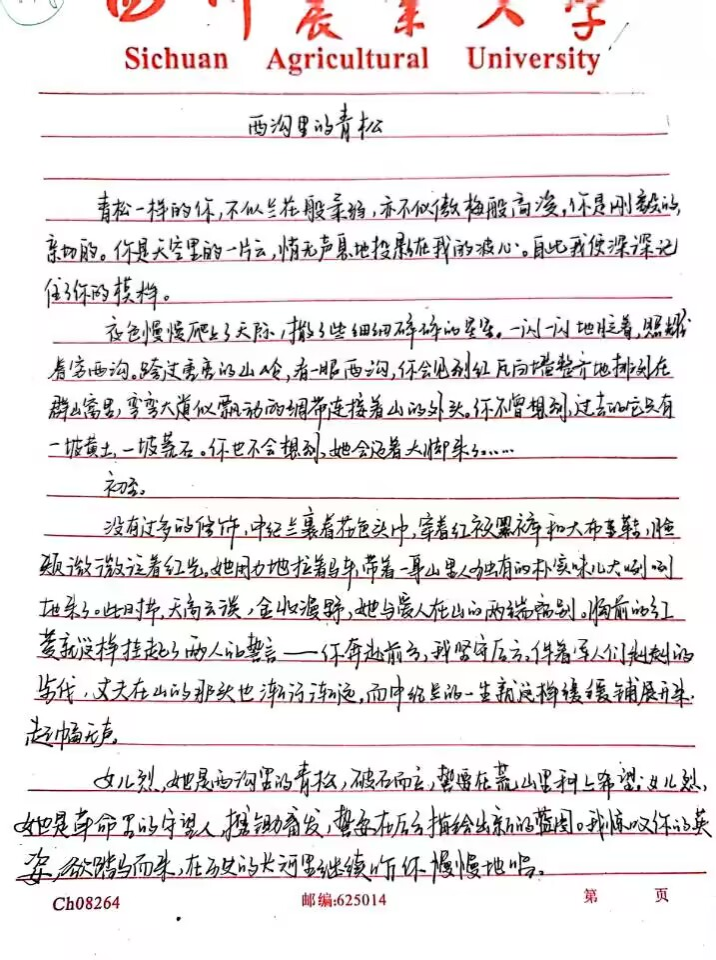 四川农业大学
Sichuan Agricultural University
西沟里的青松
青松一样的你,不似兰花般柔弱,亦不似傲梅般高浚,你是刚毅的,
亲切的。你是天空里的一片云,悄无声息地投影在我的波心。自此我便深深记
住了你的模样。
夜色慢慢爬上了天际,撒了些细细碎碎的星星。一闪一闪地眨着,照耀
着窝西沟。跨过重重的山,看一眼西沟,你会见到红瓦白墙整齐地排列在
群山窝里,弯弯大道似飘动的绸带连接着山的外头。你不曾想到,过去的它只有
一坡黄土,一坡荒石。你也不会想到,她会迈着大脚来了……
初至。
没有过多的修饰,申纪兰裹着花色头巾,穿着红袄黑裤和大布鞋,脸
颊微微泛着红光。她用力地拉着马车,带着一身山里人独有的朴实味儿大咧咧
地来了。此时节,天高云淡,金收漫野,她与爱人在山的两端话别。胸前的红
就这样挂起了两人的誓言——你奔赴前方,我坚守后方。伴着军人们赳赳的
步伐,丈夫在山的那头也渐行渐远,而申纪兰的一生就这样缓缓铺展开来,
起幅无声。
女儿烈,她是西沟里的青松,破石而立,誓要在荒山里种上希望;女儿烈,
她是革命里的守望人,攥锄奋发,誓要在后方描绘出新的蓝图。我惊叹你的英
姿,欲踏马而来,在历史的长河里继续听你慢慢地唱。
Ch08264
邮编:625014
第 页